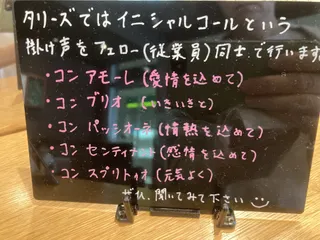 タリーズではイニシャルコールという
掛け声をフェロー(従業員)同士で行います
・コン アモーレ(愛情を込めて)
・コン ブリオ (いきいきと)
・コン パッシオーネ(情熱を込めて)
・コン センティメント(感情を込めて)
・コン スピリトィオ(元気よく)
ぜひ、聞いてみて下さい